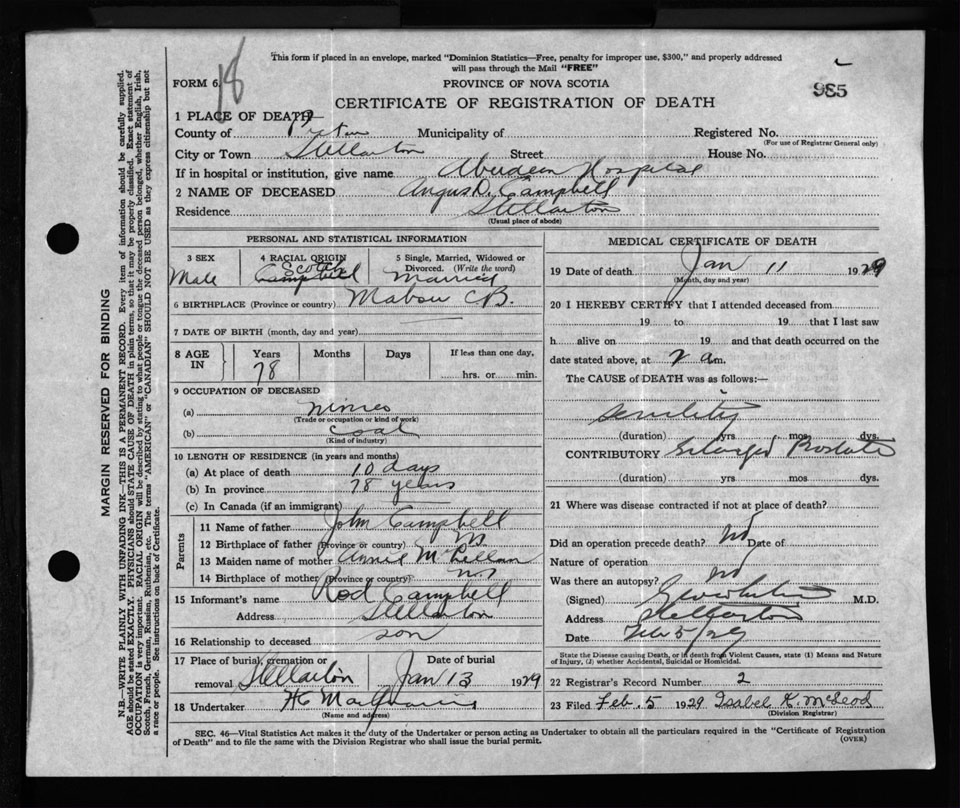 This form if placed in an envelope, marked "Dominion Statistics—Free, penalty for improper use, $300," and properly addressed
will pass through the Mail "FREE"
FORM 6. 18
PROVINCE OF NOVA SCOTIA
985
CERTIFICATE OF REGISTRATION OF DEATH
1 PLACE OF DEATH
County of Pictou Municipality of Registered No.
(For use of Registrar General only)
City or Town Stellarton Street House No.
If in hospital or institution, give name Aberdeen Hospital
2 NAME OF DECEASED Angus D. Campbell
Residence Stellarton
(Usual place of abode)
PERSONAL AND STATISTICAL INFORMATION
3 SEX 4 RACIAL ORIGIN 5 Single, Married, Widowed or
Divorced. (Write the word)
Male Scotch Campbell Married
6 BIRTHPLACE (Province or country) Mabou CB.
7 DATE OF BIRTH (month, day and year)
8 AGE IN Years Months Days If less than one day,
78 hrs. or min.
9 OCCUPATION OF DECEASED
(a)
(Trade or occupation or kind of work)
(b) coal
(Kind of industry)
10 LENGTH OF RESIDENCE (in years and months)
(a) At place of death 10 days
(b) In province 78 years
(c) In Canada (if an immigrant)
Parents
11 Name of father John Campbell
12 Birthplace of father (Province or country) NS
13 Maiden name of mother Annie McLellan
14 Birthplace of mother (Province or country) NS
15 Informant's name Rod Campbell
Address Stellarton
16 Relationship to deceased son
17 Place of burial, cremation or removal Stellarton Date of burial Jan 13 1929
18 Undertaker
(Name and address)
MEDICAL CERTIFICATE OF DEATH
19 Date of death Jan 11 1929
(Month, day and year)
20 I HEREBY CERTIFY that I attended deceased from
19 to 19 that I last saw
h alive on 19 and that death occurred on the
date stated above, at 2 am.
The CAUSE of DEATH was as follows:—
Senility
(duration) yrs. mos. dys.
CONTRIBUTORY Enlarged Prostate
(duration) yrs mos dys.
21 Where was disease contracted if not at place of death?
Did an operation precede death? No Date of
Nature of operation
Was there an autopsy? no
(Signed) M.D.
Address Stellarton
Date Feb 5/29
State the Disease causing Death, or in death from Violent Causes, state (1) Means and Nature
of Injury, (2) whether Accidental, Suicidal or Homicidal.
22 Registrar's Record Number 2
23 Filed Feb. 5 1929 Isabel K. McLeod
(Division Registrar)
SEC. 46—Vital Statistics Act makes it the duty of the Undertaker or person acting as Undertaker to obtain all the particulars required in the "Certificate of Registration
of Death" and to file the same with the Division Registrar who shall issue the burial permit.
(OVER)
MARGIN RESERVED FOR BINDING
N.B.—WRITE PLAINLY WITH UNFADING INK—THIS IS A PERMANENT RECORD. Every item of information should be carefully supplied.
AGE should be stated EXACTLY. PHYSICIANS should STATE CAUSE OF DEATH in plain terms, so that it may be properly classified. Exact statement of
OCCUPATION is very important. RACIAL ORIGIN will be described by stating to what people or tongue the deceased person belonged, whether English, Irish,
Scotch, French, German, Russian, Ruthenian, etc. The terms "AMERICAN" or "CANADIAN" SHOULD NOT BE USED as they express citizenship but not
a race or people. See instructions on back of Certificate.